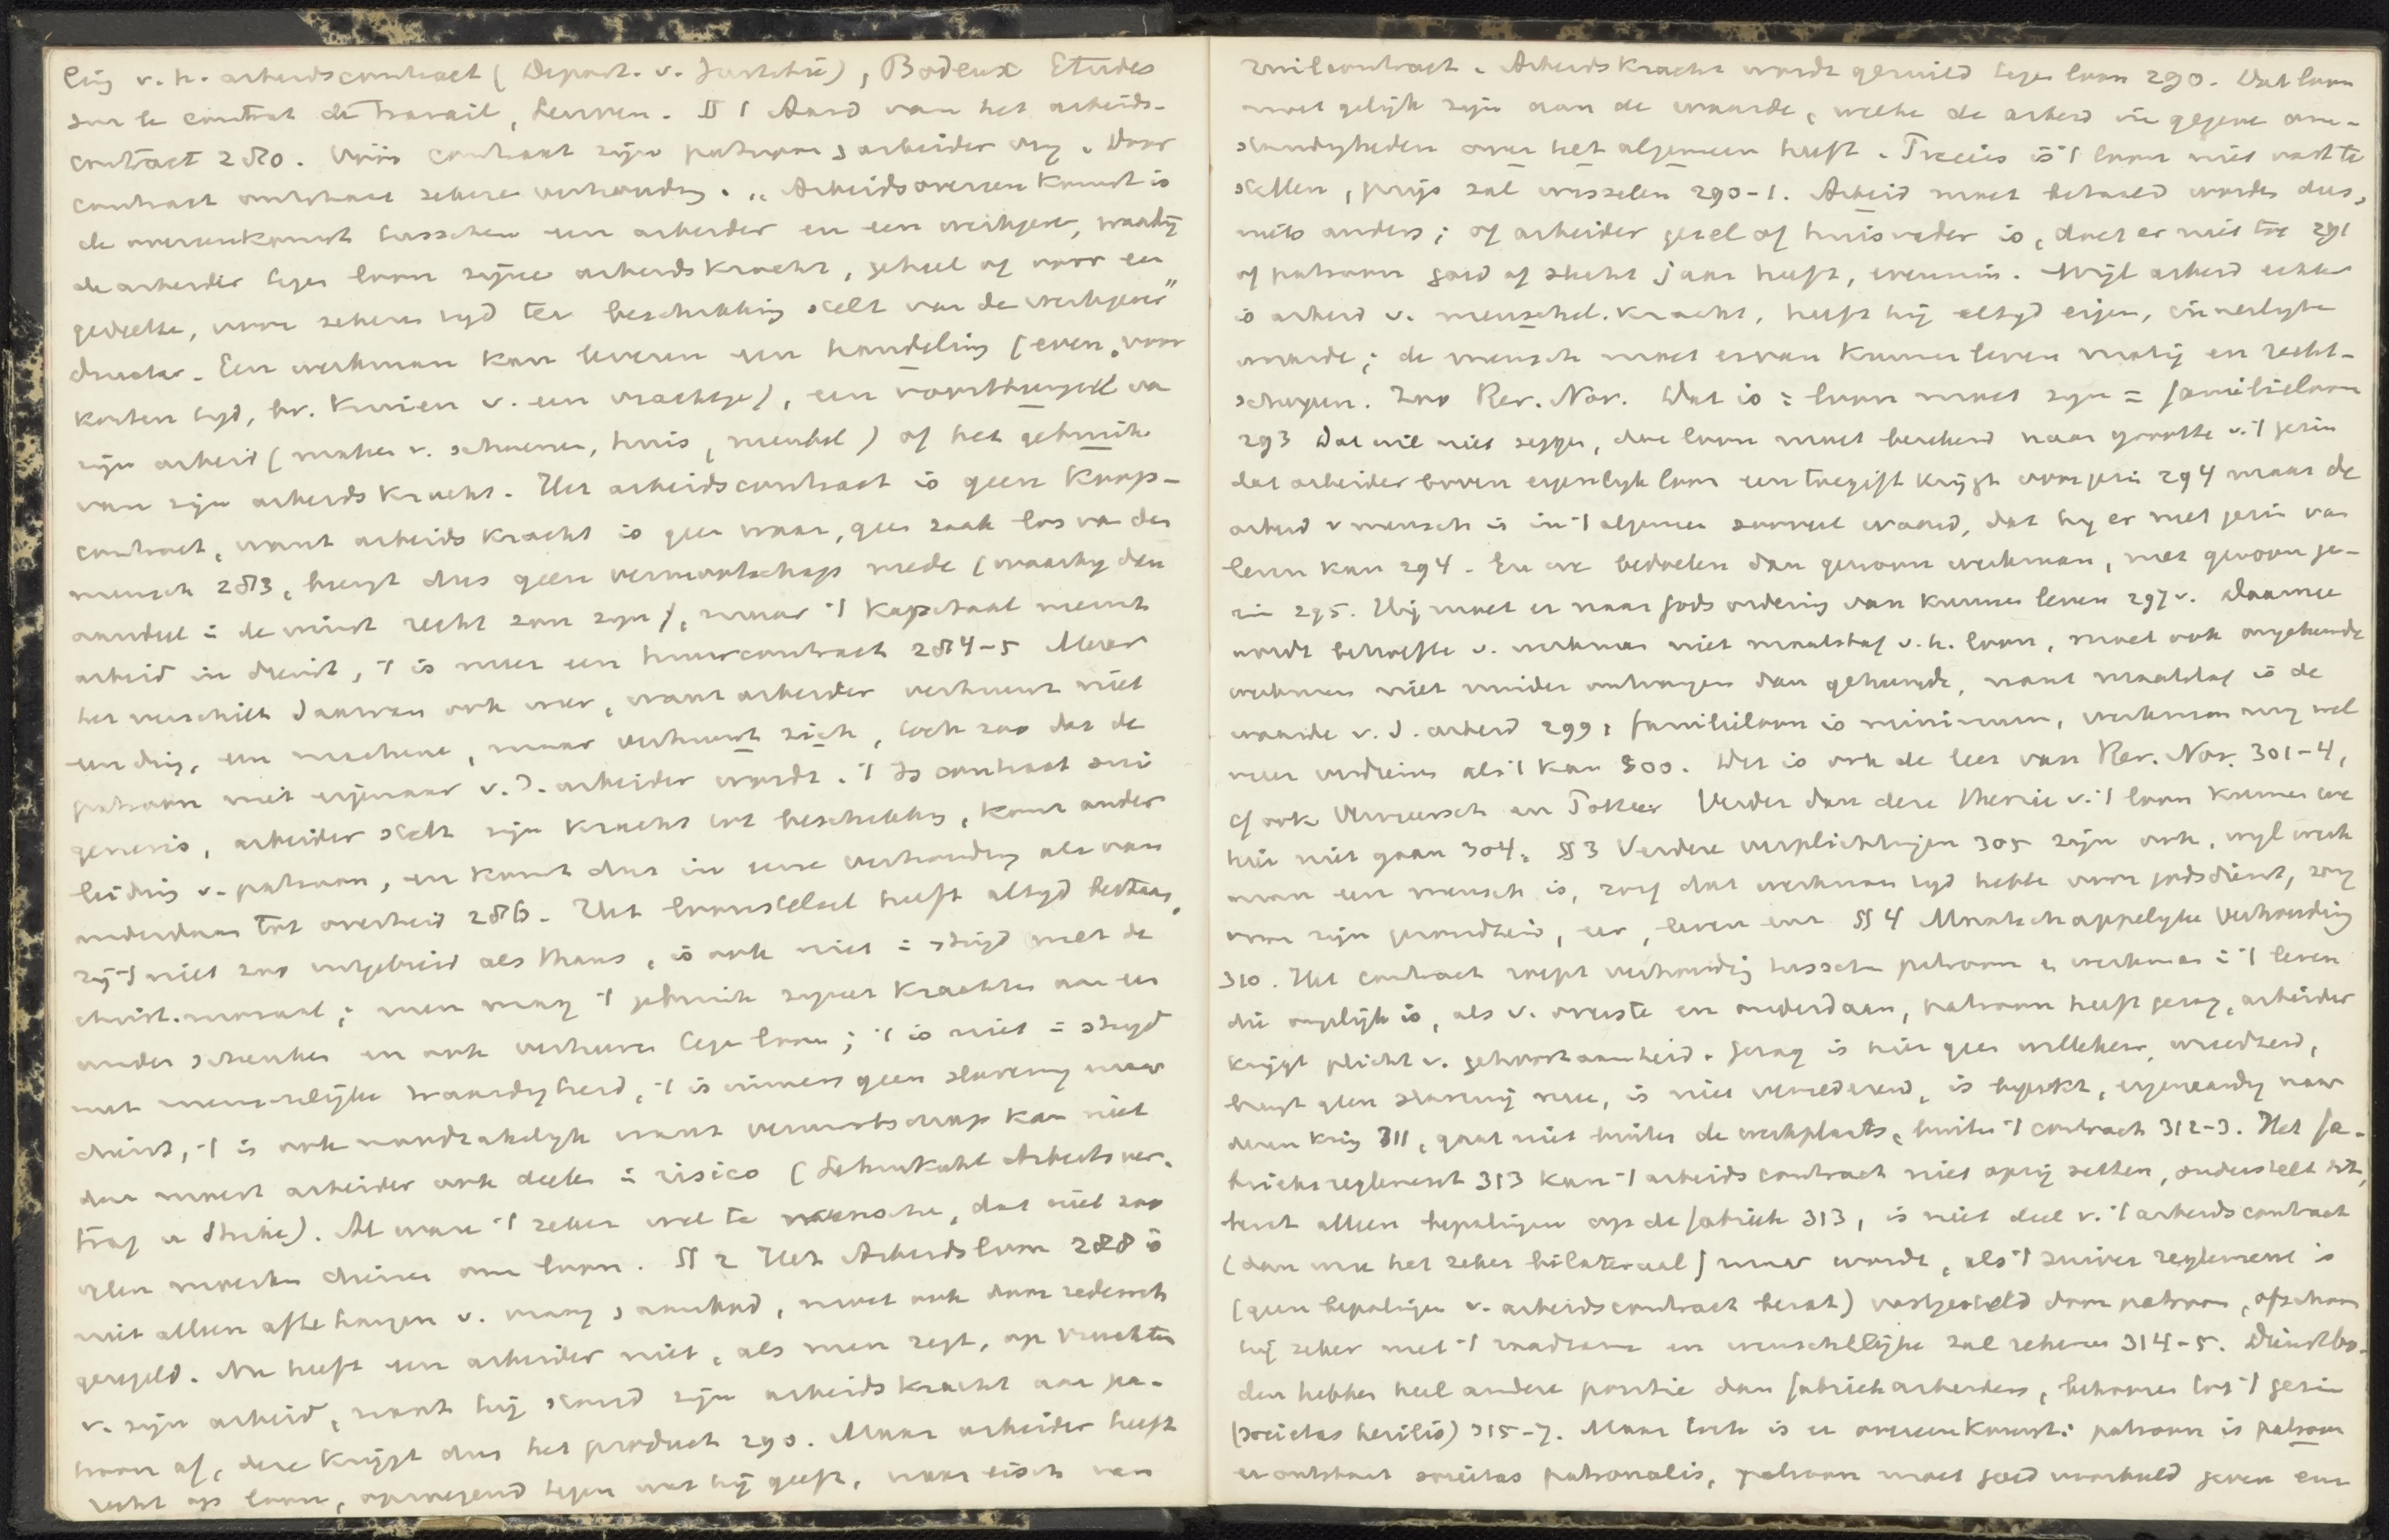 ling v. h. arbeidscontract (Depart. v. Justitie), Bodeux Etudes
sur le contrat de travail, Leuven. §§ 1 Aard van het arbeids-
contract 280. Vóór contract zijn patroon & arbeider vrij. Door
contract ontstaat zekere verhouding. „Arbeidsovereenkomst is
de overeenkomst tusschen een arbeider en een werkgever, waarbij
de arbeider tegen loon zijne arbeidskracht, geheel of voor een
gedeelte, voor zekeren tijd ter beschikking stelt van de werkgever"
Een werkman kan leveren een handeling (even, voor
korten tijd, bv. kruien v. een vrachtje), een voortbrengsel van
zijn arbeid (maken v. schoenen, huis, meubel) of het gebruik
van zijn arbeidskracht. Het arbeidscontract is geen koop-
contract, want arbeidskracht is geen waar, geen zaak los van den
mensch 283, brengt dus geen vennootschap mede (waarbij den
aandeel in de winst recht zou zijn), maar 't kapitaal neemt
arbeid in dienst, 't is meer een huurcontract 284-5 Maar
het verschilt daarvan ook weer, want arbeider verhuurt niet
een ding, een machine, maar verhuurt zich, toch zoo dat de
patroon niet eigenaar v. d. arbeider wordt. 't Is contract sui
generis, arbeider stelt zijn kracht tot beschikking, komt onder
leiding v. patroon, en komt dus in eene verhouding als van
onderdaan tot overheid 286. Het loonstelsel heeft altijd bestaan,
zij 't niet zoo uitgebreid als thans, is ook niet in strijd met de
christ. moraal; men mag 't gebruik zijner krachten aan een
ander schenken en ook verhuren tegen loon; 't is niet in strijd
met menschelijke waardigheid, 't is immers geen slavernij maar
dienst, 't is ook noodzakelijk want vennootschap kan niet
dan moest arbeider ook deelen in risico (Lehmkuhl Arbeitsver-
trag u Strike). Al ware 't zeker wel te wenschen, dat niet zoo
velen moesten dienen om loon. §§ 2 Het Arbeidsloon 288 is
niet alleen afhangen v. vraag & aanbod, moet ook door zedewet
geregeld. Nu heeft een arbeider niet, als men zegt, op vruchten
v. zijn arbeid, want hij stond zijn arbeidskracht aan pa-
troon af, deze krijgt dus het product 290. Maar arbeider heeft
recht op loon, opwegend tegen wat hij geeft, naar eisch van
ruilcontract. Arbeidskracht wordt geruild tegen loon 290. Dat loon
moet gelijk zijn aan de waarde, welke de arbeid in gegeven om-
standigheden over het algemeen heeft. Precies is 't loon niet vast te
stellen, prijs zal wisselen 290-1. Arbeid moet betaald worden dus,
niets anders; of arbeider gezel of huisvader is, doet er niet toe 291
of patroon goed of slecht jaar heeft, evenmin. Wijl arbeid echter
is arbeid v. menschel. kracht, heeft hij altijd eigen, innerlijke
waarde; de mensch moet ervan kunnen leven matig en recht-
schapen. Zoo Rer. Nov. Dat is: loon moet zijn = familieloon
293 Dat wil niet zeggen, dat loon moet berekend naar grootte v. 't gezin
dat arbeider boven eigenlijk loon een toegift krijgt voor gezin 294 maar de
arbeid v mensch is in 't algemeen zooveel waard, dat hij er met gezin van
leven kan 294. En we bedoelen dan gewoon werkman, met gewoon ge-
zin 295. Hij moet er naar Gods ordening van kunnen leven 297v. Daarmee
wordt behoefte v. werkman niet maatstaf v. h. loon, moet ook ongehuwde
werkman niet minder ontvangen dan gehuwde, want maatstaf is de
waarde v. d. arbeid 299, familieloon is minimum, werkman mag wel
meer verdienen als 't kan 300. Dit is ook de leer van Rer. Nov. 301-4,
cf ook Vermeersch en Pottier Verder dan deze theorie v. 't loon kunnen we
hier niet gaan 304. §§ 3 Verdere verplichtingen 305 zijn ook, wijl werk-
man een mensch is, zorg dat werkman tijd hebbe voor godsdienst, zorg
voor zijn gezondheid, eer, leven enz §§ 4 Maatschappelijke verhouding
310. Het contract roept verhouding tusschen patroon en werkman in 't leven
die ongelijk is, als v. overste en onderdaan, patroon heeft gezag, arbeider
krijgt plicht v. gehoorzaamheid. Gezag is hier geen willekeur, wreedheid,
brengt geen slavernij mee, is niet vernederend, is beperkt, eigenaardig naar
dezen kring 311, gaat niet buiten de werkplaats, buiten 't contract 312-3. Het fa-
brieksreglement 313 kan 't arbeidscontract niet opzij zetten, onderstelt dit,
bevat alleen bepalingen op de fabriek 313, is niet deel v. 't arbeidscontract
(dan ware het zeker bilateraal) maar wordt, als 't zuiver reglement is
(geen bepalingen v. arbeidscontract bevat) vastgesteld door patroon, ofschoon
hij zeker met 't raadzame en wenschelijke zal rekenen 314-5. Dienstbo-
den hebben heel andere positie dan fabriekarbeiders, behooren tot 't gezin
(societas herilis) 315-7. Maar toch is er overeenkomst: patroon is patroon
er ontstaat societas patronalis, patroon moet goed voorbeeld geven enz